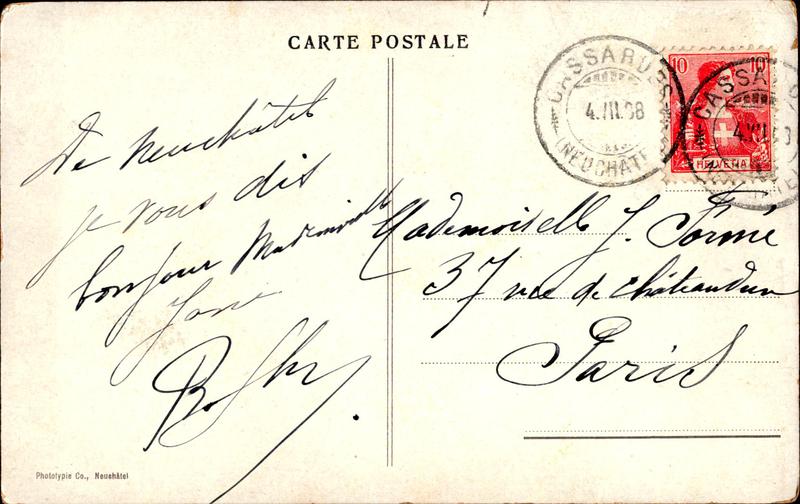 CARTE POSTALE
CASSARDES
4.VII.08
(NEUCHÂT
10 10
HELVETIA
CASSA
De Neuchâtel
je vous dis
bonjour Mademoiselle
Jane
Mademoiselle J. Formé
37 rue de Châteaudun
Paris
Phototypie Co., Neuchâtel